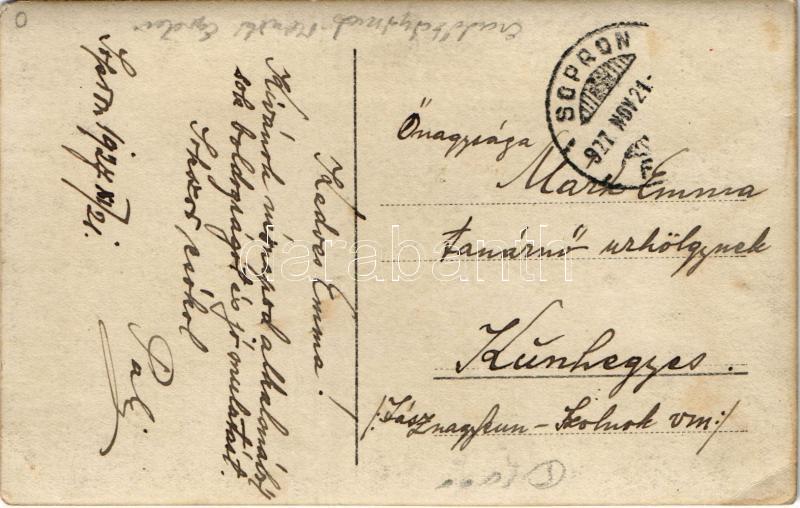 Kedves Emma!
Kívánok névnapod alkalmából
sok boldogságot és jó mulatást.
Sokszor csókol
Pali
Sopron 1927 XI/21.
SOPRON
927 NOV 21
Őnagysága
Marx Emma
tanárnő urhölgynek
Kunhegyes.
/: Jász nagykun-Szolnok vm :/
darabanth